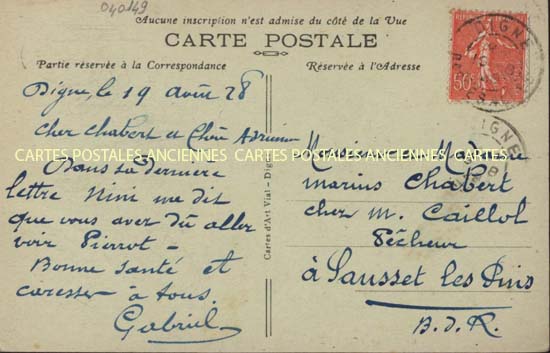 040149
Aucune inscription n'est admise du côté de la Vue
CARTE POSTALE
Partie réservée à la Correspondance
Réservée à l'Adresse
Digne, le 19 août 28
Cher Chabert et Chère
Dans sa dernière
lettre Nini me dit
que vous avez dû aller
voir Pierrot -
Bonne santé et
caresses à tous.
Gabriel
Cartes d'Art Vial - Digne
Monsieur et Mme
Marius Chabert
chez M. Caillol
Pêcheur
à Sausset les Pins
B.d.R.
DIGNE
50c
DIGNE
CARTES POSTALES ANCIENNES CARTES POSTALES ANCIENNES CARTES